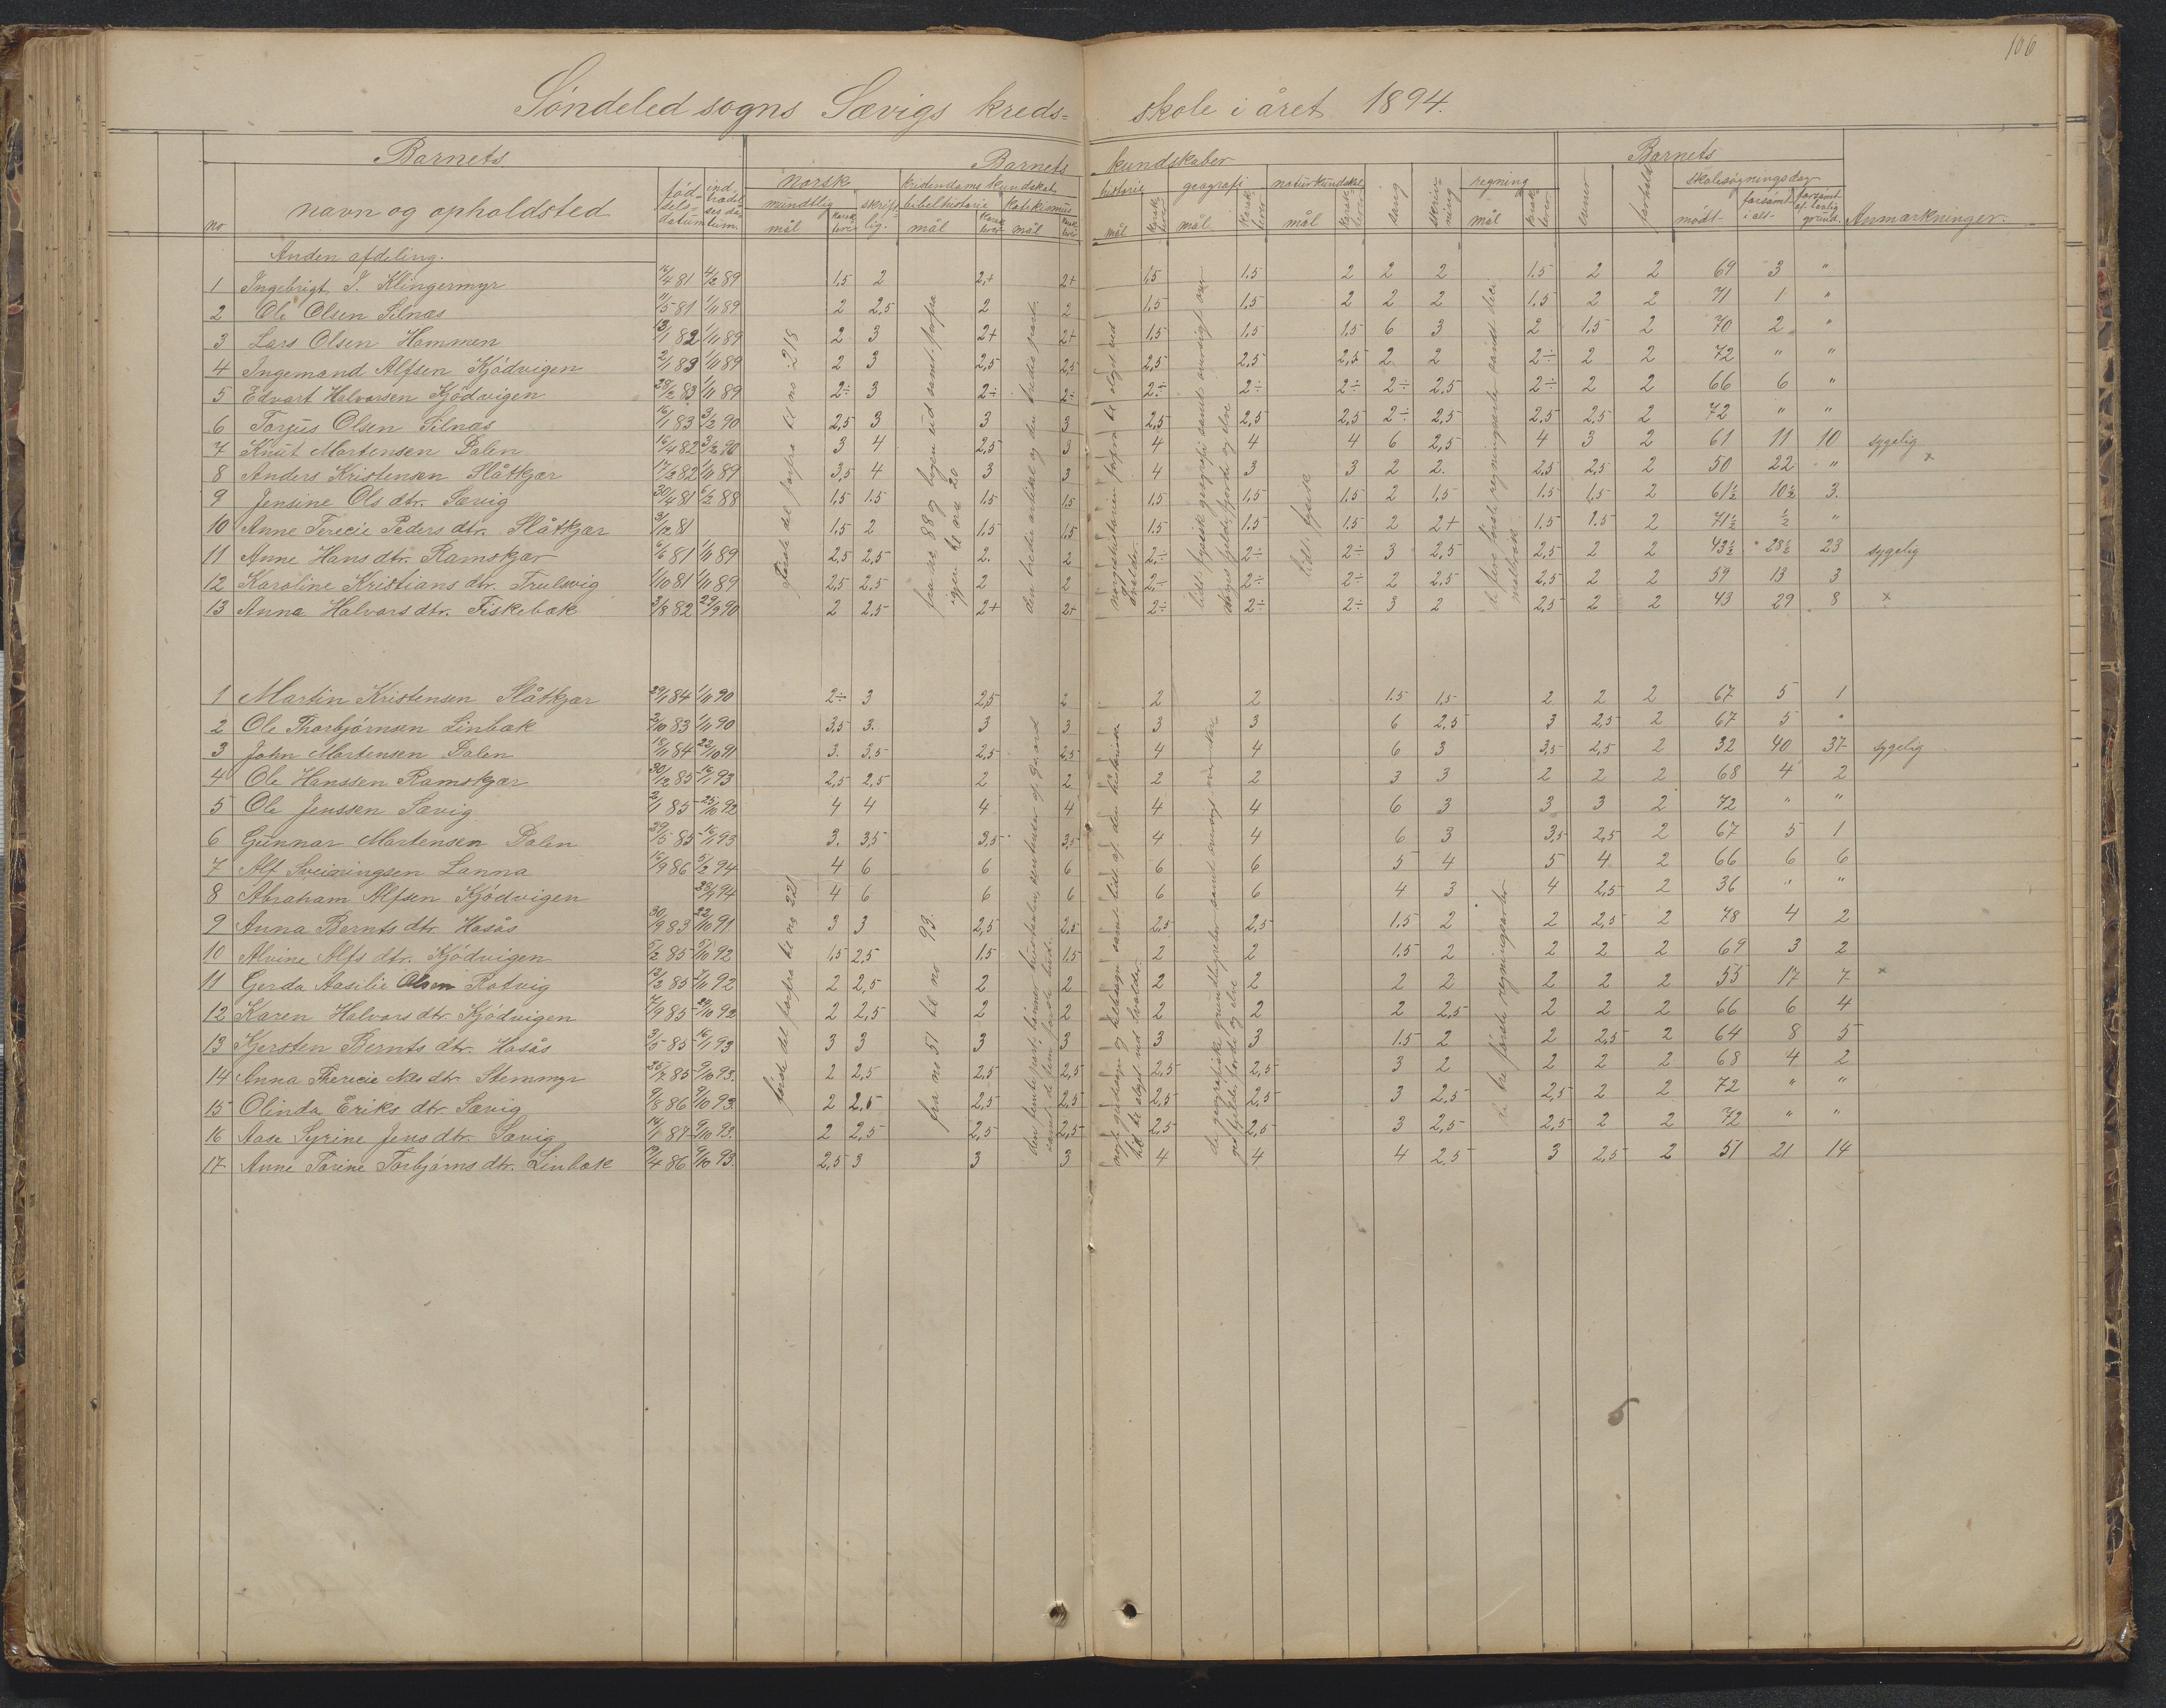 106
Söndeled sogns Sævigs kreds= skole i året 1894.
Barnets Barnets kundskaber Barnets
no navn og opholdsted födselsdatum indtrædelsesdatum norsk kristendomskundskab historie geografi naturkundskab sang skrivning regning evner forhold skolesøgningsdage Anmærkninger.
mundtlig skriftlig. bibelhistorie katekismus mödt forsömt i alt forsömt af lovlig grund.
mål karakter mål karakter mål karakter mål karakter mål karakter mål karakter mål karakter
Anden afdeling.
1 Ingebrigt J. Klingermyr 16/4 81 4/2 89 1,5 2 2+ 2+ 1,5 1.5 2 2 2 1.5 2 2 69 3 "
2 Ole Olsen Silnæs 11/5 81 1/11 89 2 2,5 2 2 1,5 1,5 2 2 2 1,5 2 2 71 1 "
3 Lars Olsen Hammen 13/1 82 1/11 89 2 3 2+ 2+ 1,5 1,5 1.5 6 3 2 1,5 2 70 2 "
4 Ingemand Alfsen Kjödvigen 2/1 83 1/11 89 2 3 2,5 2,5 2,5 2,5 2,5 2 2 2÷ 2 2 72 " "
5 Edvart Halvorsen Kjödvigen 28/2 83 1/11 89 2÷ 3 2÷ 2÷ 2÷ 2÷ 2÷ 2÷ 2,5 2÷ 2 2 66 6 "
6 Torjus Olsen Silnæs 16/1 83 3/2 90 2,5 3 3 3 2,5 2,5 2,5 2÷ 2,5 2,5 2,5 2 72 " "
7 Knut Mortensen Dalen 16/4 82 3/2 90 3 4 2,5 3 4 4 4 6 2,5 4 3 2 61 11 10 sygelig
8 Anders Kristensen Slåtkjær 17/2 82 1/11 89 3,5 4 3 3 4 3 3 2 2. 2,5 2,5 2 50 22 " x
9 Jensine Ols dtr. Sævig 30/4 81 6/2 88 1,5 1.5 1,5 1,5 1,5 1,5 1.5 2 1,5 1.5 1,5 2 61½ 10½ 3.
10 Anne Terecie Peders dtr. Slåtkjær 3/12 81 1,5 2 1,5 1,5 1.5 1.5 1.5 2 2+ 1.5 1.5 2 71½ ½ "
11 Anne Hans dtr. Ramskjær 6/6 81 1/11 89 2,5 2,5 2. 2 2÷ 2÷ 2÷ 3 2,5 2,5 2 2 43½ 28½ 23 sygelig
12 Karoline Kristians dtr. Trulsvig 1/10 81 1/11 89 2,5 2,5 2 2 2÷ 2÷ 2÷ 2 2.5 2,5 2 2 59 13 3
13 Anna Halvors dtr. Fiskebæk 3/8 82 29/9 90 2 2,5 2+ 2+ 2÷ 2÷ 2÷ 3 2 2,5 2 2 43 29 8 x
Første del forfra til no 218
fra no 88 og bogen ud samt forfra igjen til no 20
den tredie artikel og den tredie part.
norgeshistorien forfra til slaget ved Svolder.
lidt fysisk geografi samt oversigt over Norges fjelde, fjorde og elve
lidt fysik
1 Martin Kristensen Slåtkjær 29/1 84 1/11 90 2÷ 3 2,5 2 2 2 1.5 1,5 2 2 2 67 5 1
2 Ole Thorbjörnsen Linbæk 2/10 83 1/11 90 3,5 3. 3 3 3 3 6 2,5 3 2,5 2 67 5 "
3 John Mortensen Dalen 18/11 84 22/10 91 3. 3.5 2,5 2,5 4 4 6 3 3,5 2,5 2 32 40 37 sygelig
4 Ole Hanssen Ramskjær 30/12 85 16/1 93 2,5 2,5 2 2 2 2 3 3 2 2 2 68 4 2
5 Ole Jenssen Sævig 2/1 85 25/10 92 4 4 4 4 4 4 6 3 3 3 2 72 " "
6 Gunnar Mortensen Dalen 29/5 85 16/1 93 3. 3,5 3,5 3,5 4 4 6 3 3,5 2,5 2 67 5 1
7 Alf Sveiningsen Lanna 16/9 86 5/2 94 4 6 6 6 6 6 5 4 5 4 2 66 6 6
8 Abraham Alfsen Kjödvigen 23/1 94 4 6 6 6 6 6 4 3 4 2,5 2 36 " "
9 Anna Bernts dtr. Hasås 30/9 83 22/10 91 3 3 2,5 2,5 2,5 2,5 1.5 2 2 2,5 2 78 4 2
10 Alvine Alfs dtr. Kjödvigen 5/2 85 9/10 92 1,5 2,5 1.5 1.5 2 2 1.5 2 2 2 2 69 3 2
11 Gerda Aasilie Olsen Rotvig 13/2 85 7/11 92 2 2,5 2 2 2 2 2 2 2 2 2 55 17 7 x
12 Karen Halvors dtr. Kjödvigen 7/9 85 24/10 92 2 2,5 2 2 2 2 2 2,5 2 2 2 66 6 4
13 Kjersten Bernts dtr. Hasås 3/5 85 16/1 93 3 3 3 3 3 3 1.5 2 2 2,5 2 64 8 5
14 Anna Therecie Nils dtr. Stemmyr 25/7 85 9/10 93. 2 2,5 2,5 2,5 2,5 2,5 3 2 2 2 2 68 4 2
15 Olinda Eriks dtr. Sævig 9/8 86 9/10 93. 2 2,5 2,5 2,5 2,5 2,5 3 2,5 2,5 2 2 72 " "
16 Aase Syrine Jens dtr. Sævig 14/1 87 9/10 93. 2 2,5 2,5 2,5 2,5 2,5 3 2,5 2,5 2 2 72 " "
17 Anne Torine Torbjörns dtr. Linbæk 19/4 86 9/10 93. 2,5 3 3 3 4 4 4 2,5 3 2,5 2 51 21 14
første del forfra til no 221
fra no 51 til no 93.
de tre første regningsarter
5